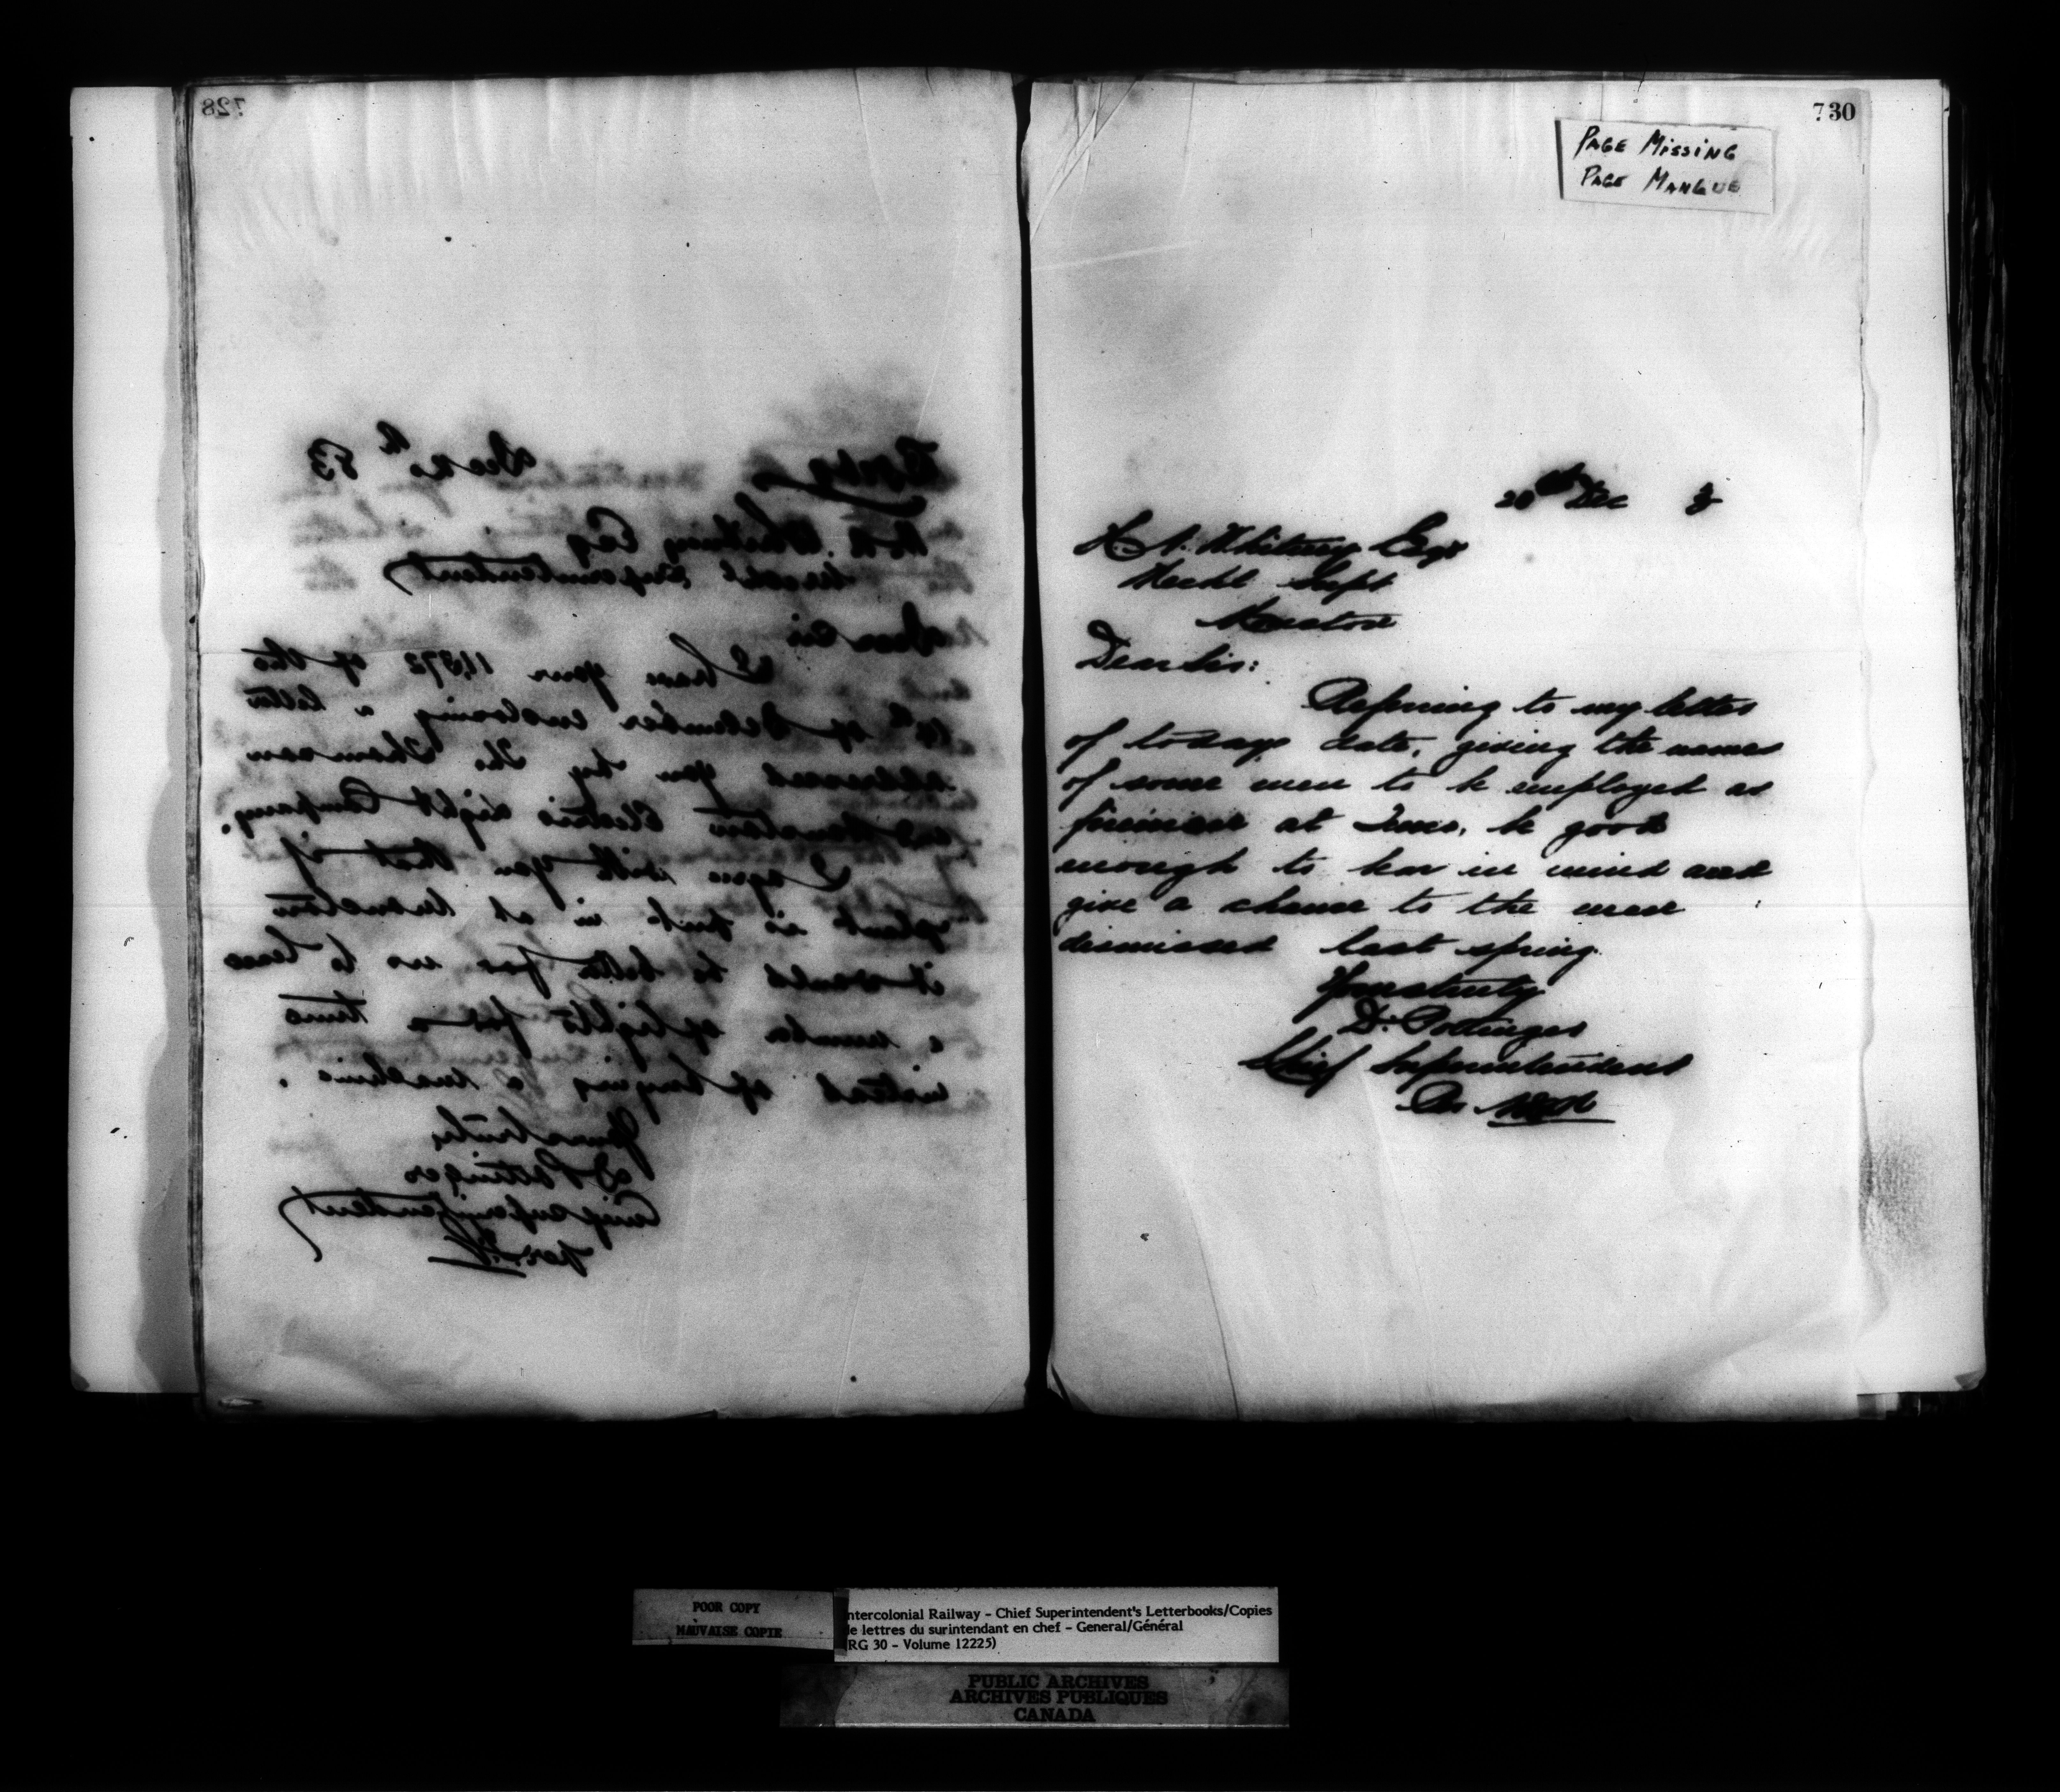 728
Copy Dec 20th 83
H.A. Whitney Esq
Mechl Superintendent
Dear Sir
I have your 11,872 of the
of December enclosing a letter
addressed you by the Thomson
and Houston Electric Light Company.
I agree with you that if
plant is put in at Moncton
it would be better for us to lease
a number of lights for a time
instead of buying a machine.
Yours truly
D Pottinger
Chief Superintendent
per
730
PAGE MISSING
PAGE MANQUE
20th Dec 3
H. A. Whitney Esqr
Mechl Supt
Moncton
Dear Sir:
Referring to my letter
of todays date, giving the names
of some men to be employed as
firemen at be good
enough to bear in mind and
give a chance to the men
dismissed last spring.
Yours truly
D. Pottinger
Chief Superintendent
Per
POOR COPY
MAUVAISE COPIE
ntercolonial Railway - Chief Superintendent's Letterbooks/Copies
de lettres du surintendant en chef - General/Général
(RG 30 - Volume 12225)
PUBLIC ARCHIVES
ARCHIVES PUBLIQUES
CANADA